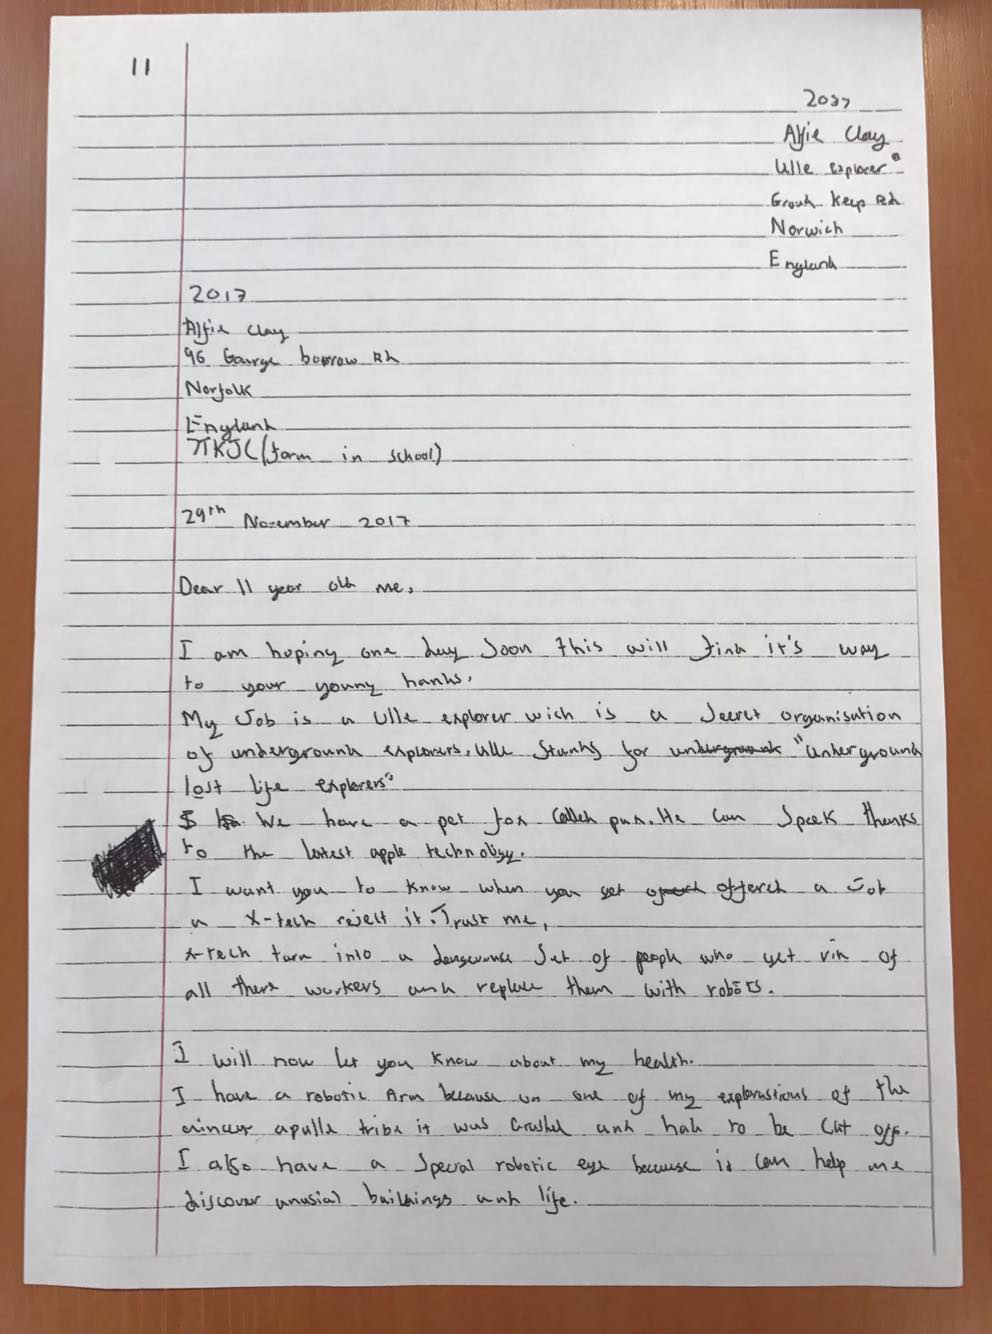 11
2037
Alfie Clay
Ulle explorer
Grouh Keep Rd
Norwich
England
2017
Alfie Clay
96 Gourge borrow Rd
Norfolk
England
7TKJC (form in school)
29th November 2017
Dear 11 year old me,
I am hoping one day soon this will find it's way
to your young hands.
My Job is a Ulle explorer wich is a secret organisation
of underground explorers. Ulle stands for "underground
lost life explorers"
We have a pet fox called pux. He can speek thanks
to the latest apple technoligy.
I want you to know when you get offered a Job
in X-tech reject it. Trust me,
x-tech turn into a dangerouse set of people who get rid of
all there workers and replace them with robots.
I will now let you know about my health.
I have a robotic Arm because on one of my explorassions of the
apulle tribe it was crushed and had to be cut off.
I also have a special robotic eye because it can help me
discover unusial buildings and life.